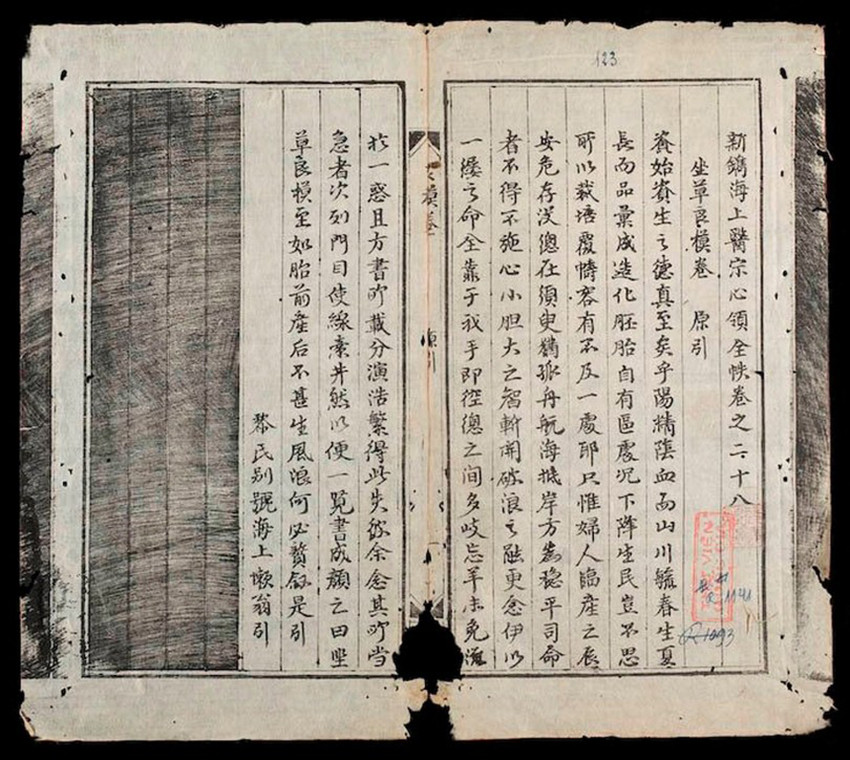 123
新鐫海上醫宗心領全帙卷之二十八
坐草良模卷 原引
資始資生之德真至矣乎陽精陰血而山川毓春生夏
長而品彙成造化胚胎自有區處况下降生民豈不思
所以栽培覆幬容有不及一處耶只惟婦人臨產之辰
安危存没總在須臾猶孤舟航海抵岸方為穩平司命
者不得不施心小胆大之智斬開破浪之能更念伊以
一縷之命全靠于我手即倥偬之间多歧忘羊未免
於一惑且方書所載分演浩繁得此失彼余念其所当
急者次列門目使線索井然以便一覧書成顏之曰坐
草良模至如胎前產后不甚生風浪何必贅敍是引
黎民别號海上懶翁引
模卷
原引
1141
1093